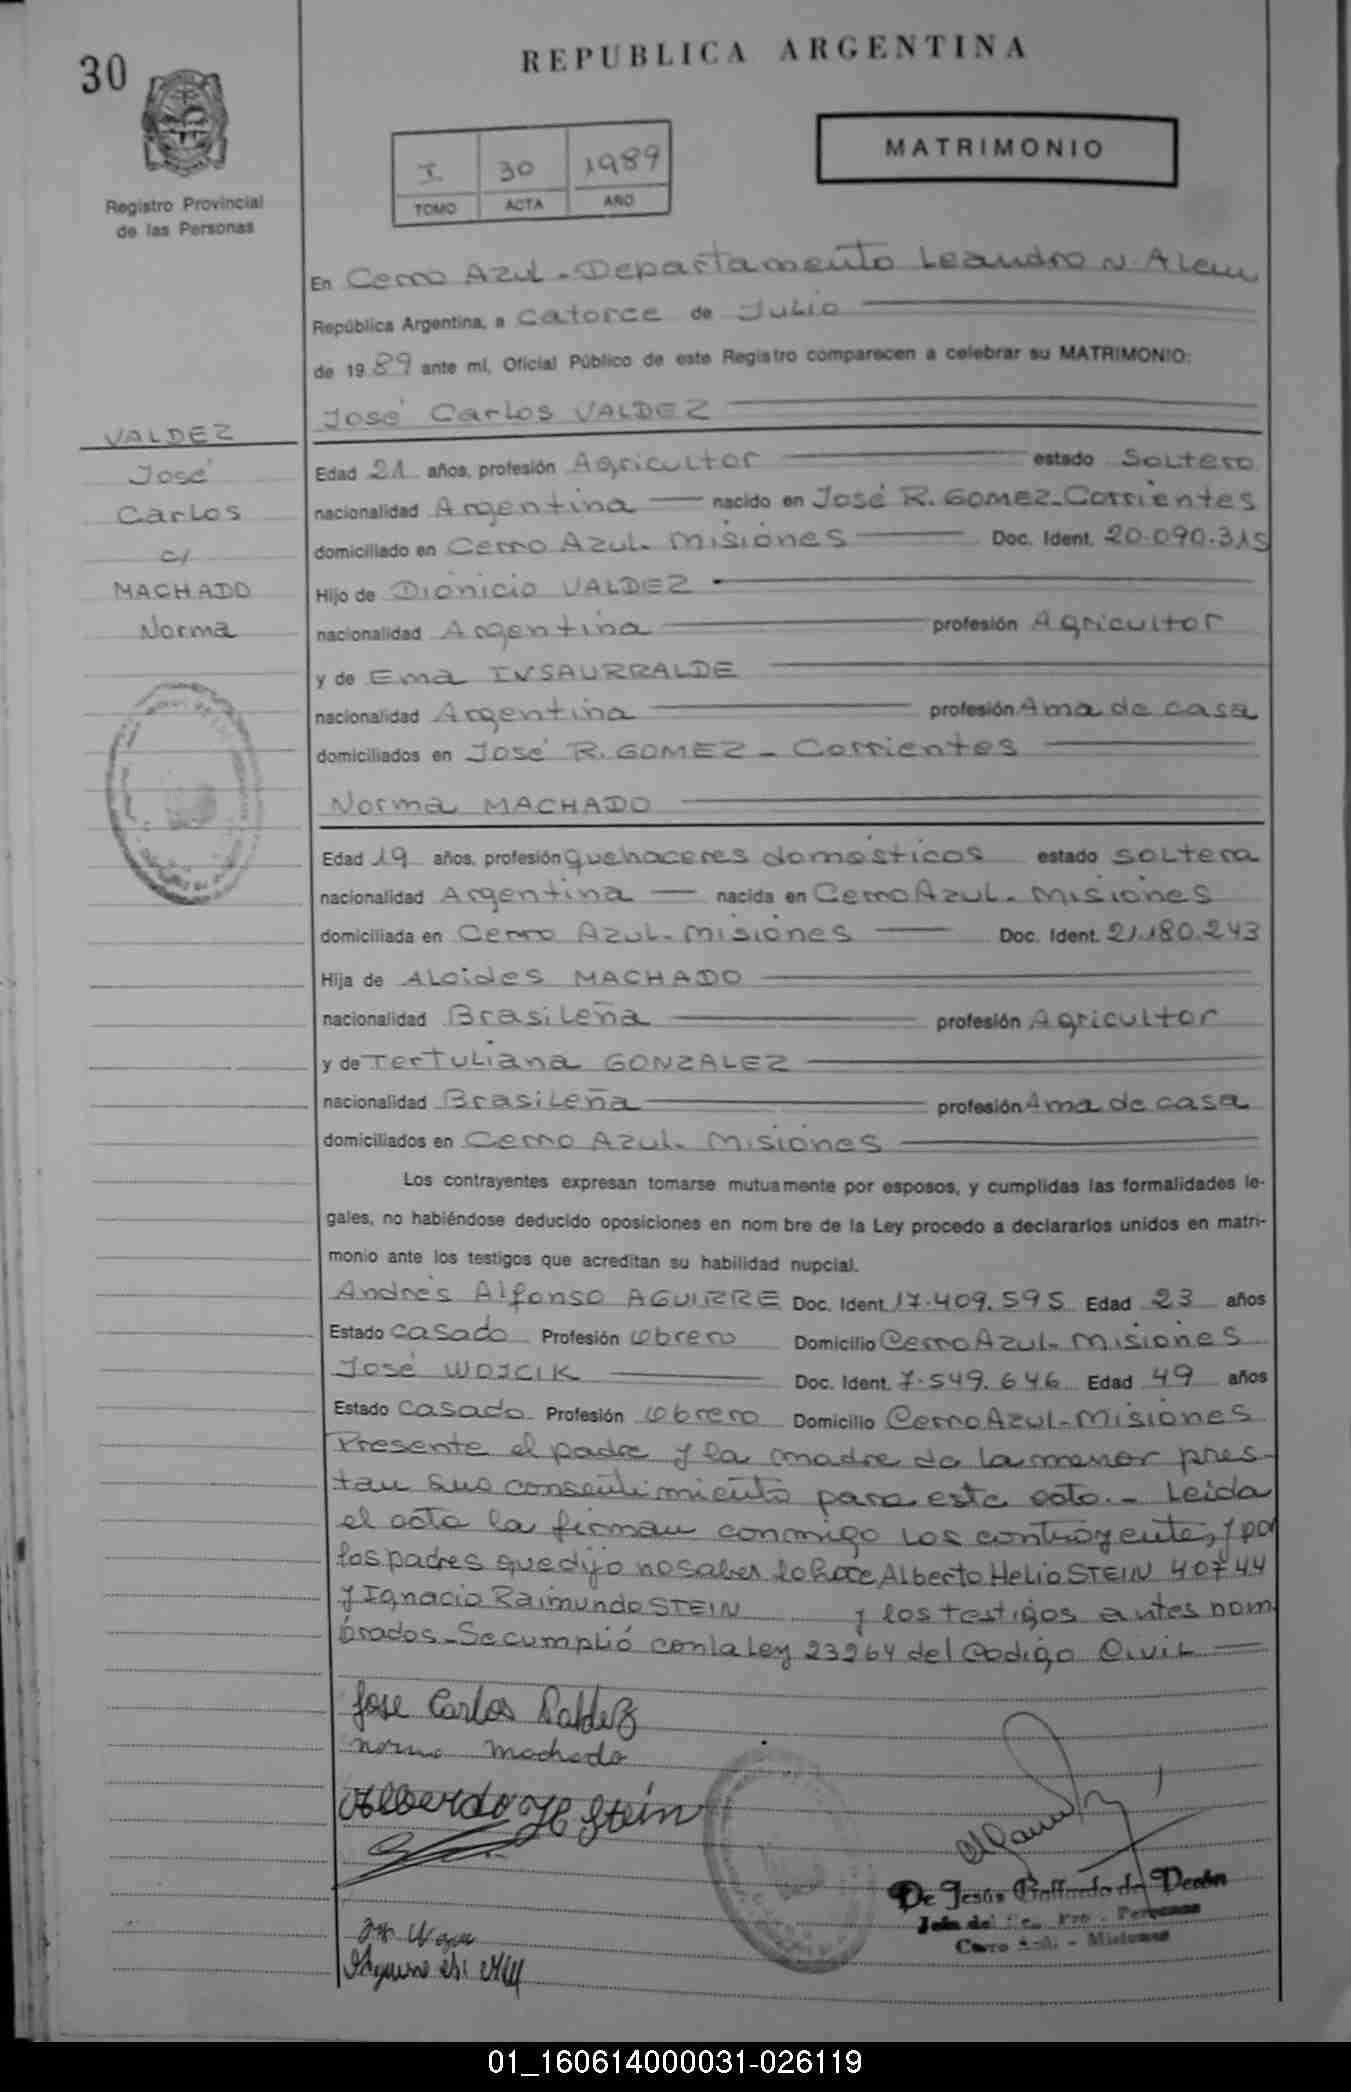 30
REPUBLICA ARGENTINA
MATRIMONIO
I 30 1989
TOMO ACTA AÑO
Registro Provincial
de las Personas
En Cerro Azul - Departamento Leandro N. Alem
República Argentina, a Catorce de Julio
de 1989 ante mí, Oficial Público de este Registro comparecen a celebrar su MATRIMONIO:
José Carlos VALDEZ
VALDEZ
José
Carlos
c/
MACHADO
Norma
Edad 21 años, profesión Agricultor estado Soltero
nacionalidad Argentina nacido en José R. GOMEZ-Corrientes
domiciliado en Cerro Azul. Misiones Doc. Ident. 20.090.315
Hijo de Dionicio VALDEZ
nacionalidad Argentina profesión Agricultor
y de Ema INSAURRALDE
nacionalidad Argentina profesión Ama de casa
domiciliados en José R. GOMEZ - Corrientes
Norma MACHADO
Edad 19 años, profesión quehaceres domésticos estado soltera
nacionalidad Argentina nacida en Cerro Azul. Misiones
domiciliada en Cerro Azul. Misiones Doc. Ident. 21.180.243
Hija de Alcides MACHADO
nacionalidad Brasileña profesión Agricultor
y de Tertuliana GONZALEZ
nacionalidad Brasileña profesión Ama de casa
domiciliados en Cerro Azul. Misiones
Los contrayentes expresan tomarse mutuamente por esposos, y cumplidas las formalidades le-
gales, no habiéndose deducido oposiciones en nom bre de la Ley procedo a declararlos unidos en matri-
monio ante los testigos que acreditan su habilidad nupcial.
Andrés Alfonso AGUIRRE Doc. Ident. 17.409.595 Edad 23 años
Estado casado Profesión Obrero Domicilio Cerro Azul. Misiones
José WOJCIK Doc. Ident. 7.549.646 Edad 49 años
Estado Casado Profesión Obrero Domicilio Cerro Azul-Misiones
Presente el padre y la madre de la menor pres-
tan sus consentimiento para este acto.- Leida
el acta la firman conmigo los contrayentes, y por
los padres que dijo no saber lo hace Alberto Helio STEIN 40744
y Ignacio Raimundo STEIN y los testigos antes nom
brados. Se cumplió con la Ley 23264 del Codigo Civil
Jose Carlos Valdez
Norma Machado
Alberdo H Stein
De Jesús Gallardo de Verón
Cerro Azul - Misiones
01_160614000031-026119